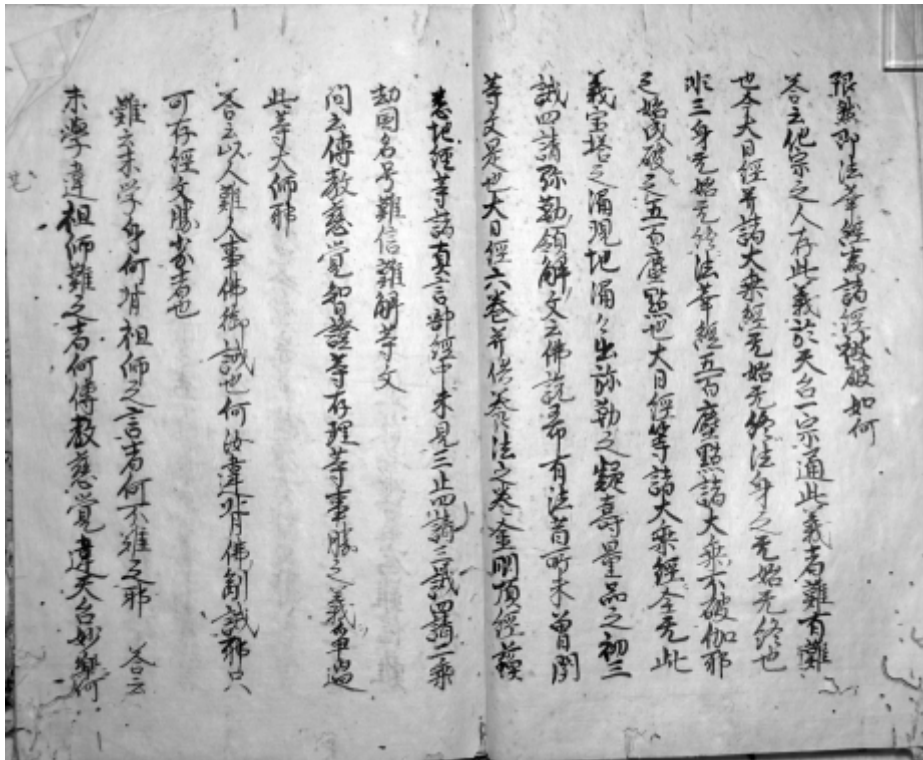 限然即法華經為諸經被破如何
答云他宗之人存此義於天台一宗通此義者難有難
也今大日經并諸大乗經无始无終法身之无始无終也
非三身无始无終法華經五百塵點諸大乗不破伽耶
之始成破之五百塵點也大日經等諸大乗經全无此
義宝塔之涌現地涌之出弥勒之疑壽量品之初三
誡四請弥勒領解文云佛說希有法昔所未曽聞
等文是也大日經六卷并供養法之卷金剛頂經蘇
悉地經等諸真言部經中未見三止四請三誡四請二乗
劫国名号難信難解等文
問云傳教慈覚智證等存理等事勝之義争過
此等大師邪
答云以人難人事佛御誡也何汝違背佛制誡邪只
可存經文勝劣者也
難云末学身何背祖師之言者何不難之邪 答云
末學違祖師難之者何傳教慈覚違天台妙樂何